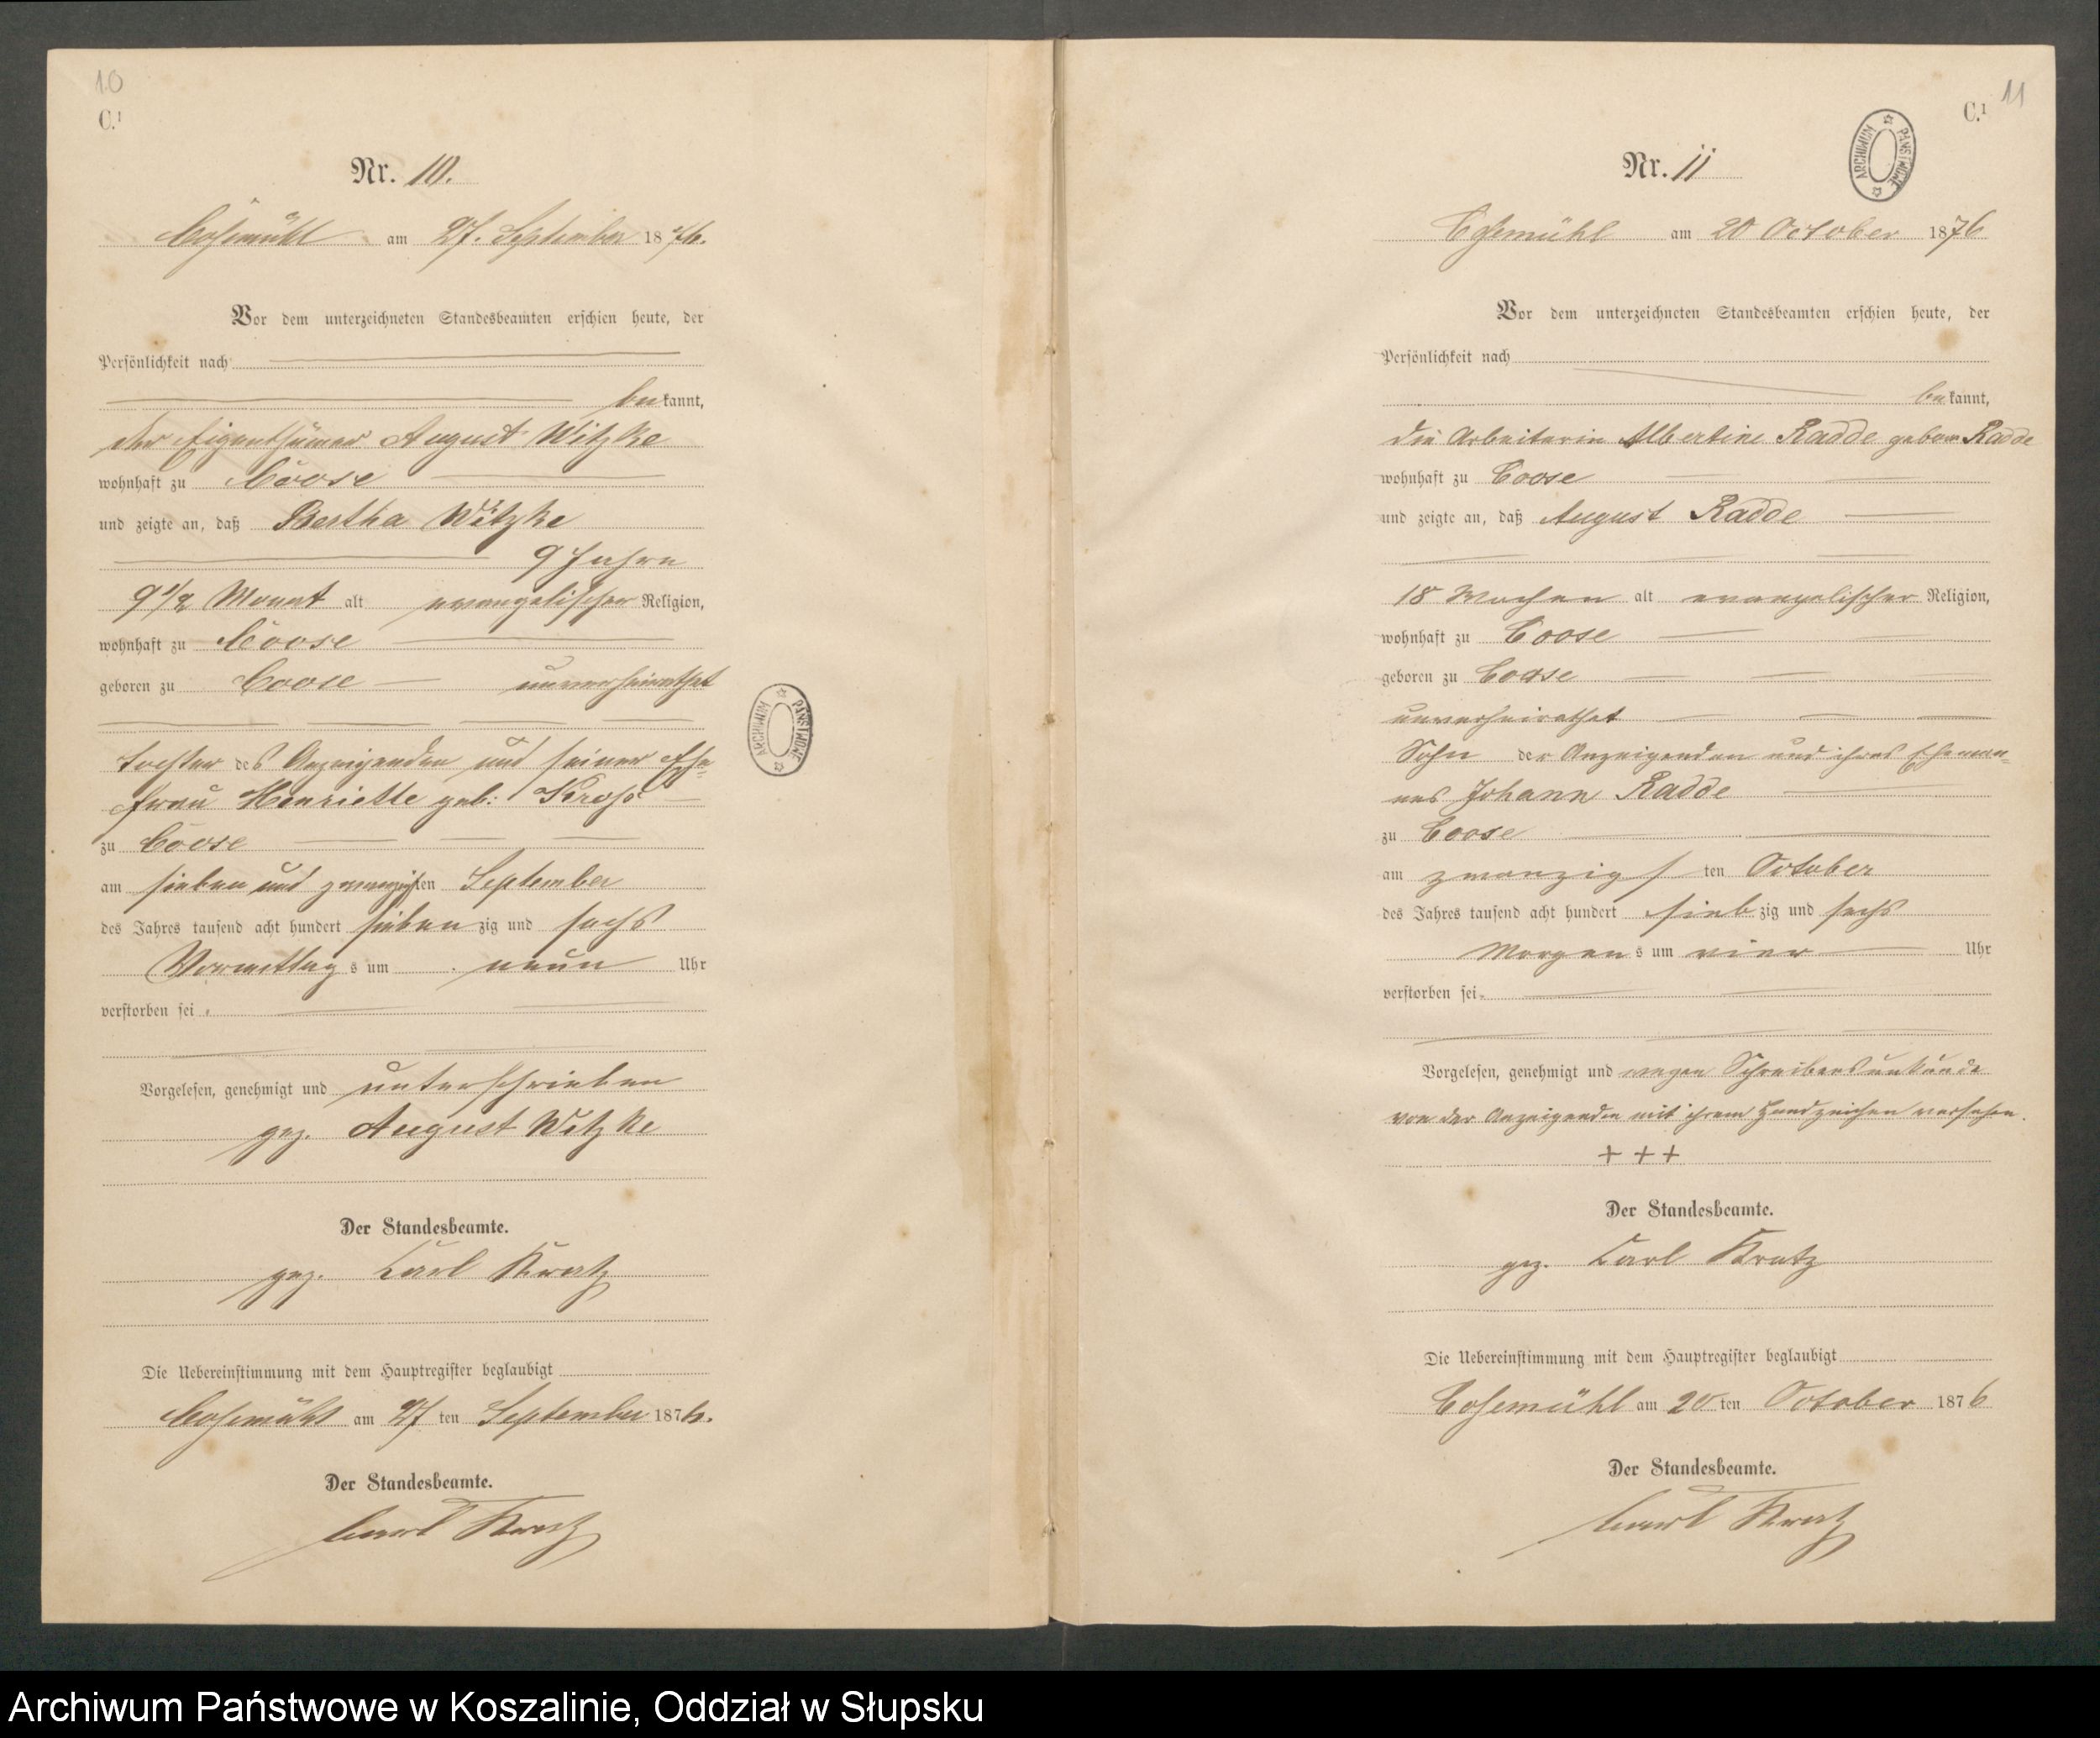 10
C.¹
Nr. 10.
Cosemühl am 27. September 1876.
Vor dem unterzeichneten Standesbeamten erschien heute, der
Persönlichkeit nach
bekannt,
der Eigenthümer August Witzke
wohnhaft zu Coose
und zeigte an, daß Bertha Witzke
9 Jahre
9 1/2 Monat alt evangelischer Religion,
wohnhaft zu Coose
geboren zu Coose unverheirathet
Tochter des Anzeigenden und seiner Ehe=
frau Henriette geb:
zu Coose
am sieben und zwanzigsten September
des Jahres tausend acht hundert sieben zig und sechs
Vormittags um neun Uhr
verstorben sei.
Vorgelesen, genehmigt und unterschrieben
gez. August Witzke
Der Standesbeamte.
gez. Carl Kratz
Die Uebereinstimmung mit dem Hauptregister beglaubigt
Cosemühl am 27 ten September 1876.
Der Standesbeamte.
Carl Kratz
11
C.¹
ARCHIWUM PAŃSTWOWE
Nr. 11
Cosemühl am 20 October 1876
Vor dem unterzeichneten Standesbeamten erschien heute, der
Persönlichkeit nach
bekannt,
die Arbeiterin Albertine Radde geboren Radde
wohnhaft zu Coose
und zeigte an, daß August Radde
18 Wochen alt evangelischer Religion,
wohnhaft zu Coose
geboren zu Coose
unverheirathet
Sohn der Anzeigenden und ihres Eheman=
nes Johann Radde
zu Coose
am zwanzigsten October
des Jahres tausend acht hundert sieb zig und sechs
Morgens um vier Uhr
verstorben sei.
Vorgelesen, genehmigt und wegen Schreibensunkunde
von der Anzeigenden mit ihrem Handzeichen versehen.
+ + +
Der Standesbeamte.
gez. Carl Kratz
Die Uebereinstimmung mit dem Hauptregister beglaubigt
Cosemühl am 20 ten October 1876
Der Standesbeamte.
Carl Kratz
ARCHIWUM PAŃSTWOWE
Archiwum Państwowe w Koszalinie, Oddział w Słupsku